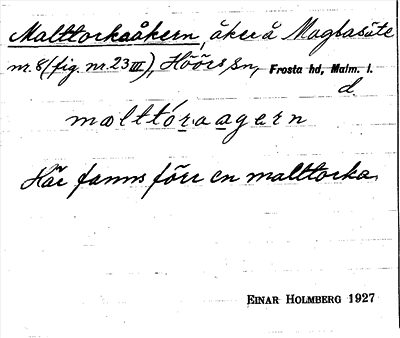 Malttorkaåkern, åker å Magbasäte
nr. 8 (fig. nr. 23 III), Höörs sn, Frosta hd, Malm. l.
d
malttóraagern
Här fanns förr en malttorka.
EINAR HOLMBERG 1927